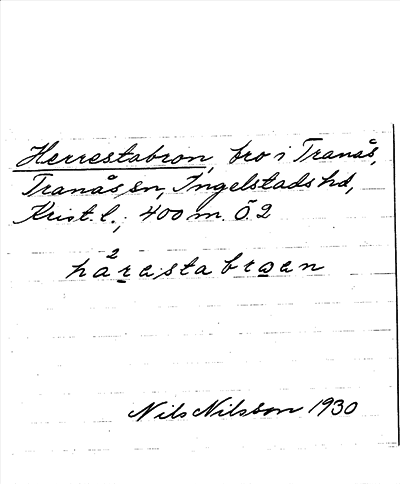 Herrestabron, bro i Tranås,
Tranås sn, Ingelstads hd,
Krist. l.; 400 m. Ö. 2
hå²restabroen
Nils Nilsson 1930